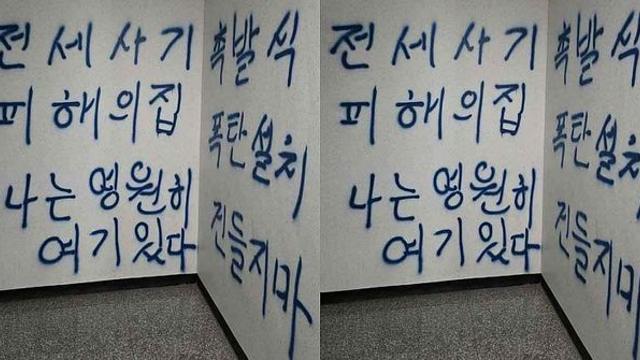 전세사기
피해의집
나는영원히
여기있다
폭발식
폭탄설치
건들지마
전세사기
피해의집
나는영원히
여기있다
폭발식
폭탄설치
건들지마